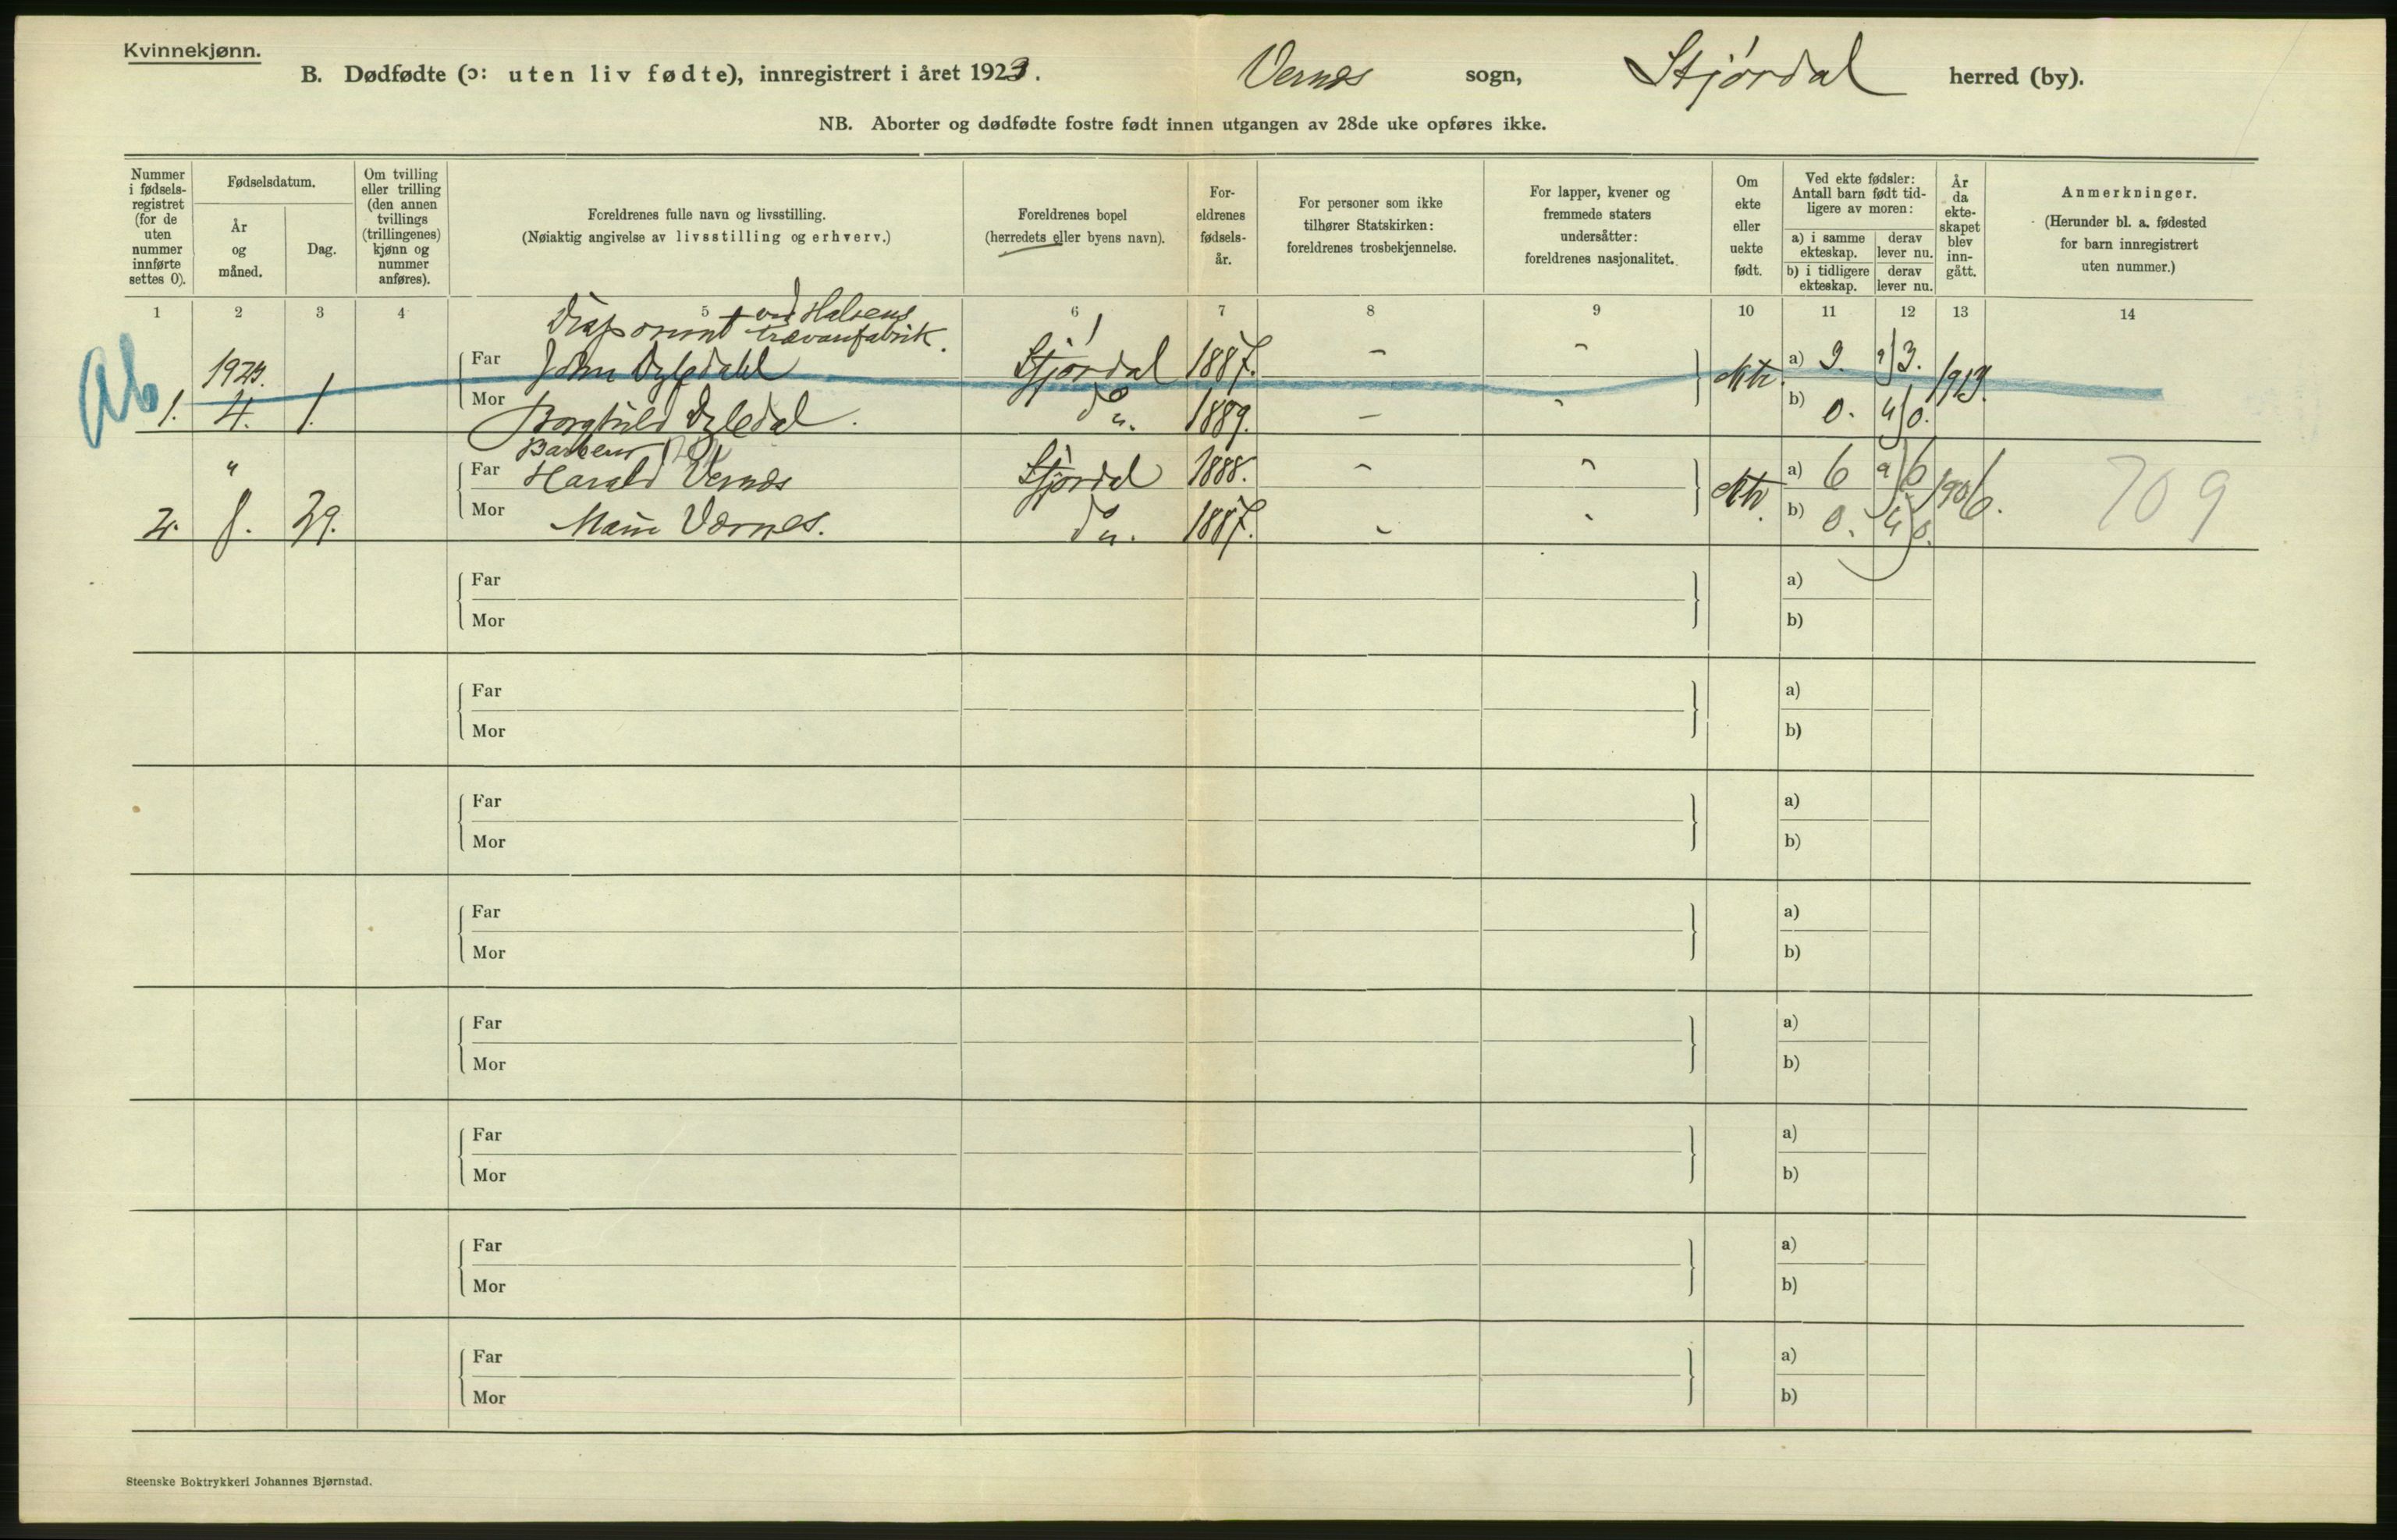 Kvinnekjønn.
B. Dødfødte (ɔ: uten liv fødte), innregistrert i året 1923. Vernes sogn, Stjórdal herred (by).
NB. Aborter og dødfødte fostre født innen utgangen av 28de uke opføres ikke.
Nummer i fødsels-registret (for de uten nummer innførte settes 0).
Fødselsdatum.
År og måned.
Dag.
Om tvilling eller trilling (den annen tvillings (trillingenes) kjønn og nummer anføres).
Foreldrenes fulle navn og livsstilling.
(Nøiaktig angivelse av livsstilling og erhverv.)
Foreldrenes bopel
(herredets eller byens navn).
For-eldrenes fødsels-år.
For personer som ikke tilhører Statskirken: foreldrenes trosbekjennelse.
For lapper, kvener og fremmede staters undersåtter: foreldrenes nasjonalitet.
Om ekte eller uekte født.
Ved ekte fødsler: Antall barn født tid-ligere av moren:
a) i samme ekteskap.
derav lever nu.
b) i tidligere ekteskap.
derav lever nu.
År da ekte-skapet blev inn-gått.
Anmerkninger.
(Herunder bl. a. fødested for barn innregistrert uten nummer.)
1 2 3 4 5 6 7 8 9 10 11 12 13 14
ved Halsens
trævarefabrik.
Ab
1923.
Far John Dybdahl Stjórdal 1887. - - ekte. a) 3. a) 3. 1913.
1. 4. 1. Mor Borghild Dybdal. do. 1889. - - b) 0. b) 0.
"
Far Harald Vernes Stjórdal 1888. - - ekte. a) 6 a) 6 1906. 709
2. 8. 29. Mor Marie Værnes. do. 1887. - - b) 0. b) 0.
Far a)
Mor b)
Far a)
Mor b)
Far a)
Mor b)
Far a)
Mor b)
Far a)
Mor b)
Far a)
Mor b)
Far a)
Mor b)
Far a)
Mor b)
Steenske Boktrykkeri Johannes Bjørnstad.